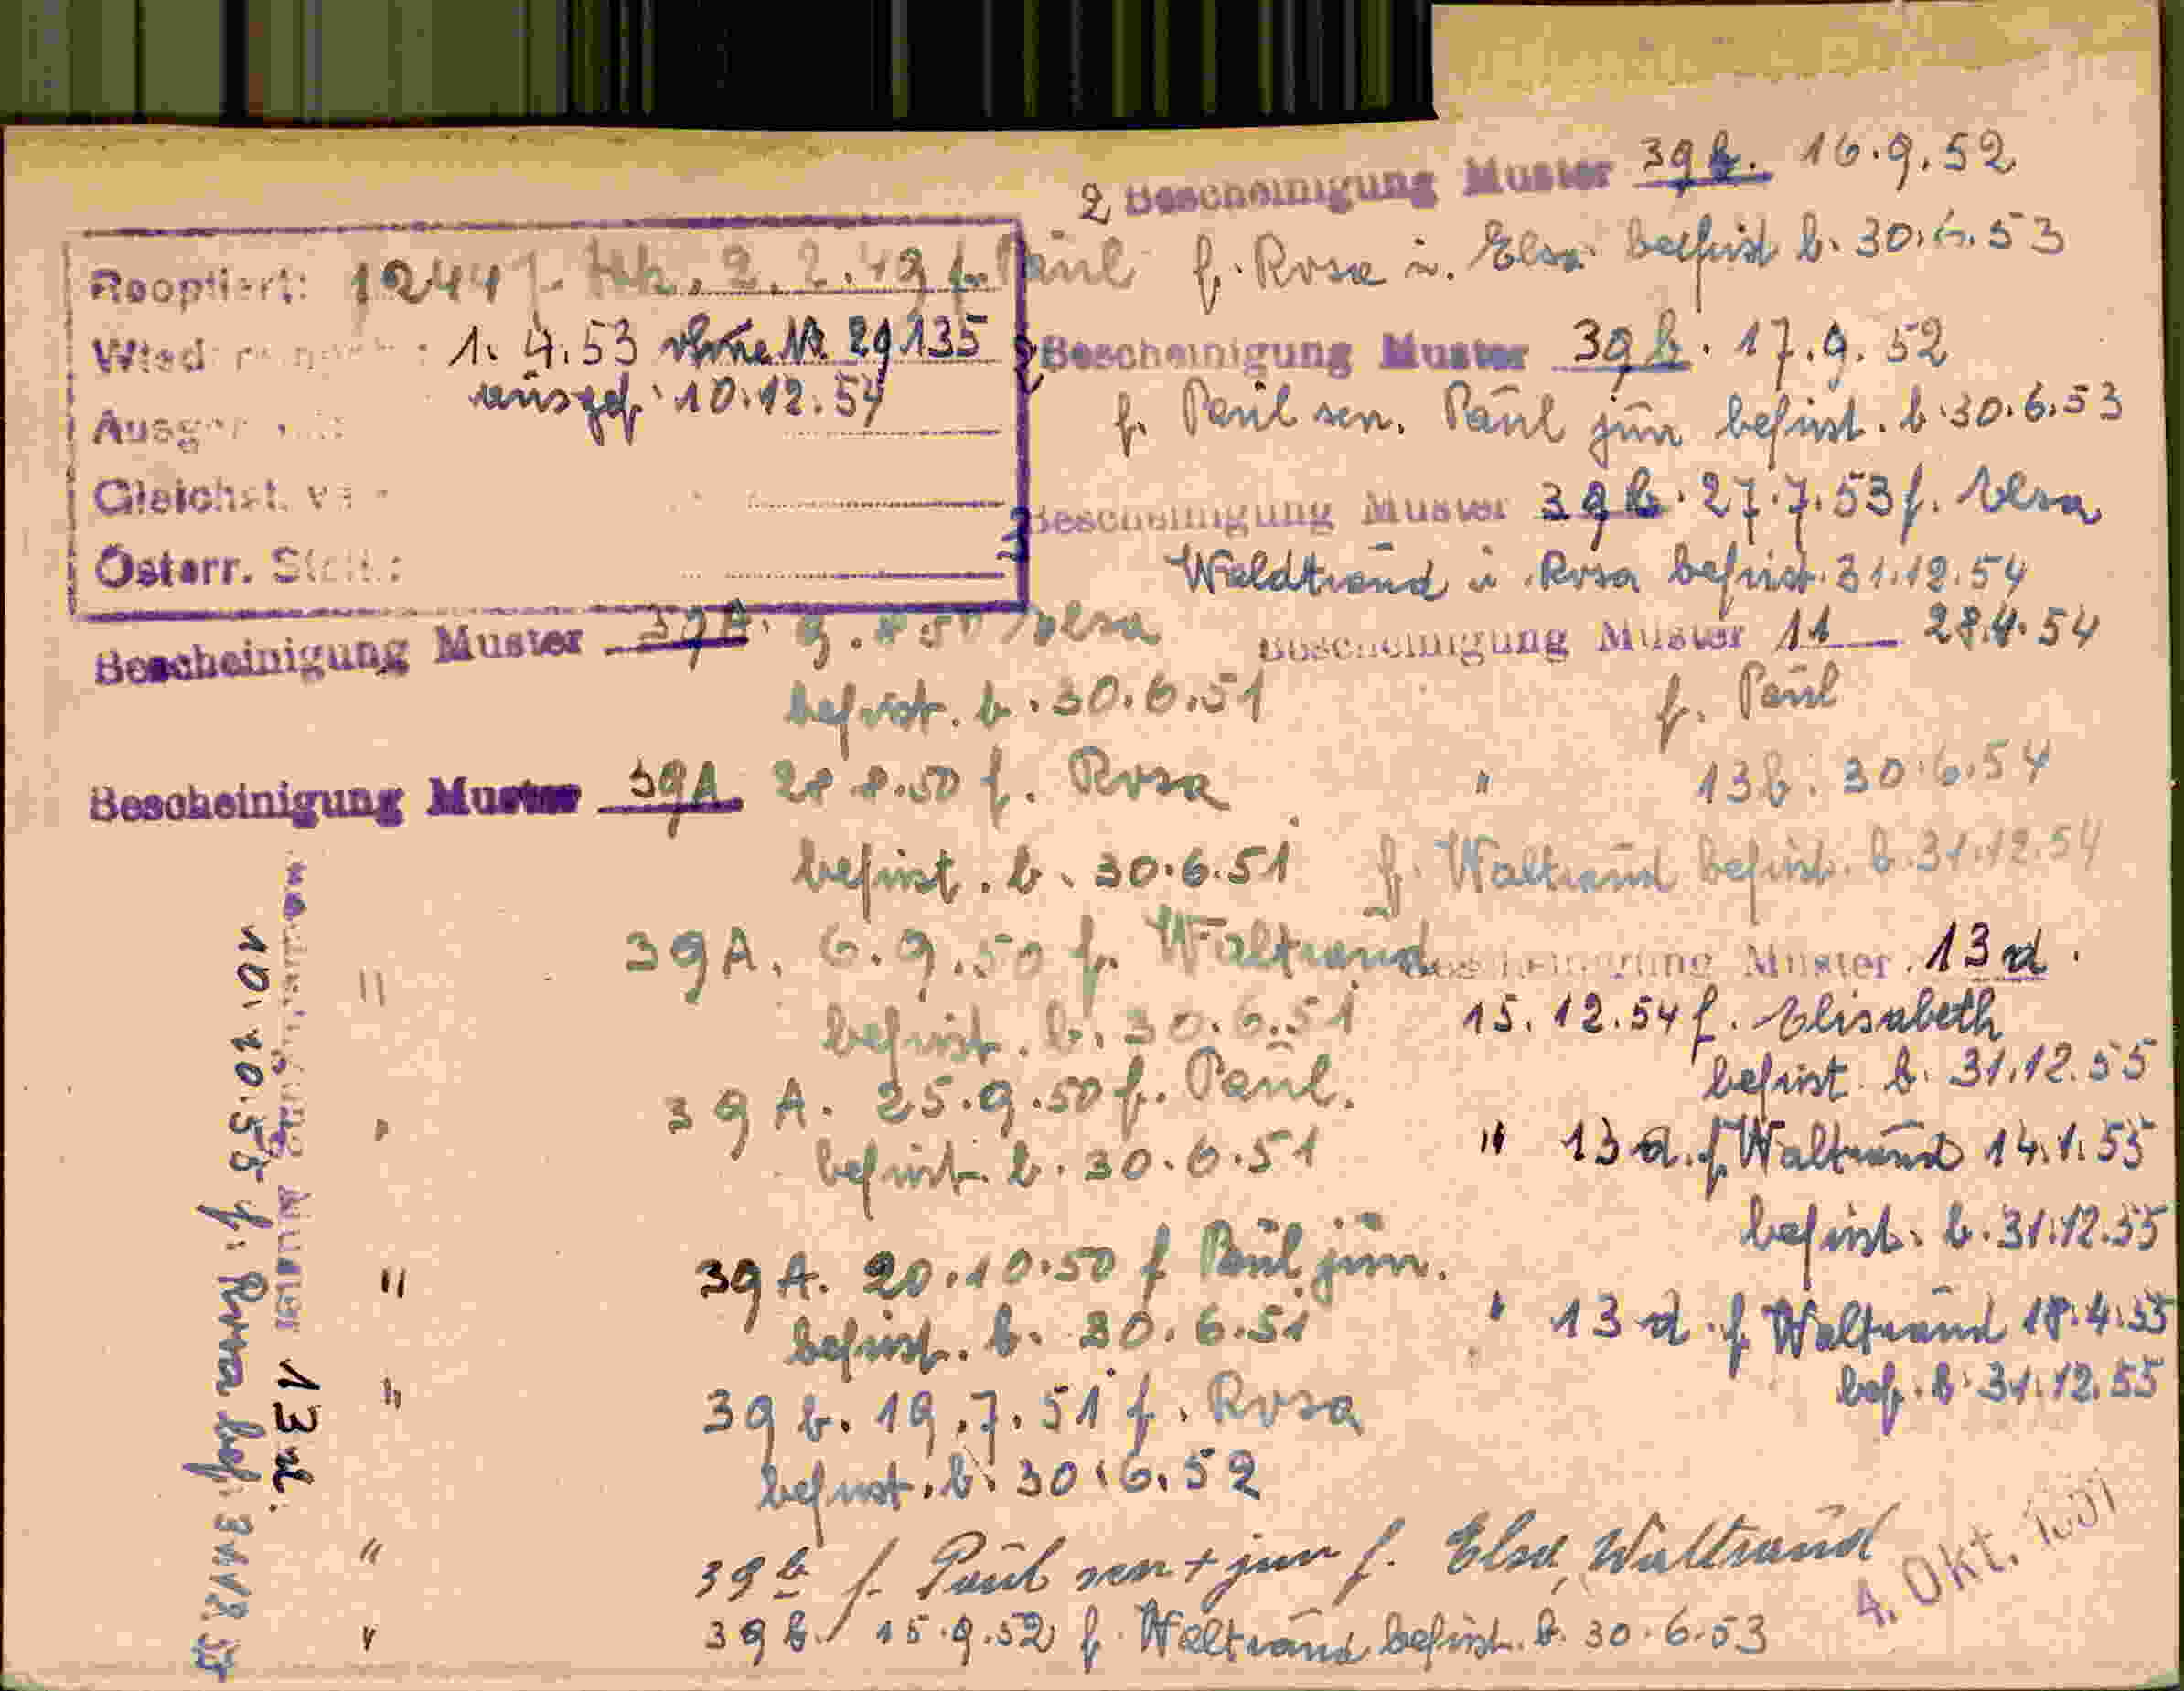 Reoptiert: 1244 2.2.49 f. Paul
1.4.53 ohne Nr 29135
ausgef. 10.12.54
Gleichst. v
Österr. Stbt.:
Bescheinigung Muster 39A. f. Elsa
befrist. b. 30.6.51
Bescheinigung Muster 39A 28.8.50 f. Rosa
befrist. b. 30.6.51
" 39A. 6.9.50 f. Waltraud
befrist. b. 30.6.51
" 39A. 25.9.50 f. Paul.
befrist. b. 30.6.51
" 39A. 20.10.50 f Paul jun.
befrist. b. 30.6.51
" 39b. 19.7.51 f. Rosa
befrist. b. 30.6.52
" 39b f. Paul sen + jun f. Elsa, Waltraud
" 39b. 15.9.52 f. Waltraud befrist. b. 30.6.53
2 Bescheinigung Muster 39b. 16.9.52
f. Rosa u. Elsa befrist b. 30.6.53
2 Bescheinigung Muster 39b. 17.9.52
f. Paul sen. Paul jun befrist. b. 30.6.53
3 Bescheinigung Muster 39b. 27.7.53 f. Elsa
Waldtraud u Rosa befrist. 31.12.54
Bescheinigung Muster 11 28.4.54
f. Paul
" 13b. 30.6.54
f. Waltraud befrist. b. 31.12.54
Bescheinigung Muster 13d.
15.12.54 f. Elisabeth
befrist. b. 31.12.55
" 13d. f. Waltraud 14.1.55
befrist. b. 31.12.55
" 13d. f Waltraud 18.4.55
bef. b. 31.12.55
4. Okt.
Bescheinigung Muster 13d.
10.10.55 f. Rosa bef. 31.12.55